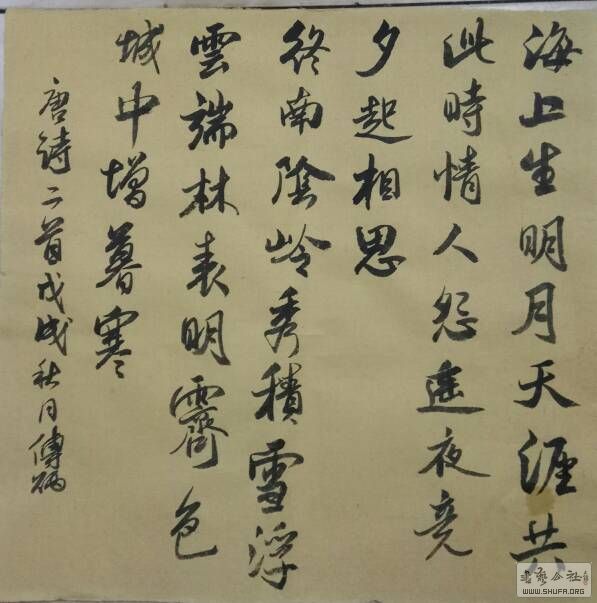 海上生明月天涯共
此時情人怨遙夜竟
夕起相思
終南陰岭秀積雪浮
雲端林表明霽色
城中增暮寒
唐詩二首戊戌秋月傅
书艺公社
WWW.SHUFA.ORG